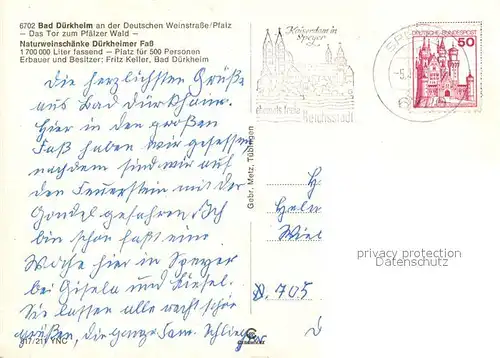 6702 Bad Dürkheim an der Deutschen Weinstraße/Pfalz
— Das Tor zum Pfälzer Wald —
Naturweinschänke Dürkheimer Faß
1 700 000 Liter fassend — Platz für 500 Personen
Erbauer und Besitzer: Fritz Keller, Bad Dürkheim
Die herzlichsten Grüße
aus Bad Dürkheim.
Hier in den großen
Faß haben wir gesessen
nachdem sind wir auf
den Feuerstein mit der
Gondel gefahren. Ich
bin schon fast eine
Woche hier in Speyer
bei Gisela und
Sie lassen alle recht schön
grüßen, die ganze Fam.
317/211 YNC
Gebr. Metz, Tübingen
Kaiserdom in
Speyer
ehemals freie
Reichsstadt
SP
-5.
6
DEUTSCHE BUNDESPOST
50
H
D. 705
privacy protection
Datenschutz